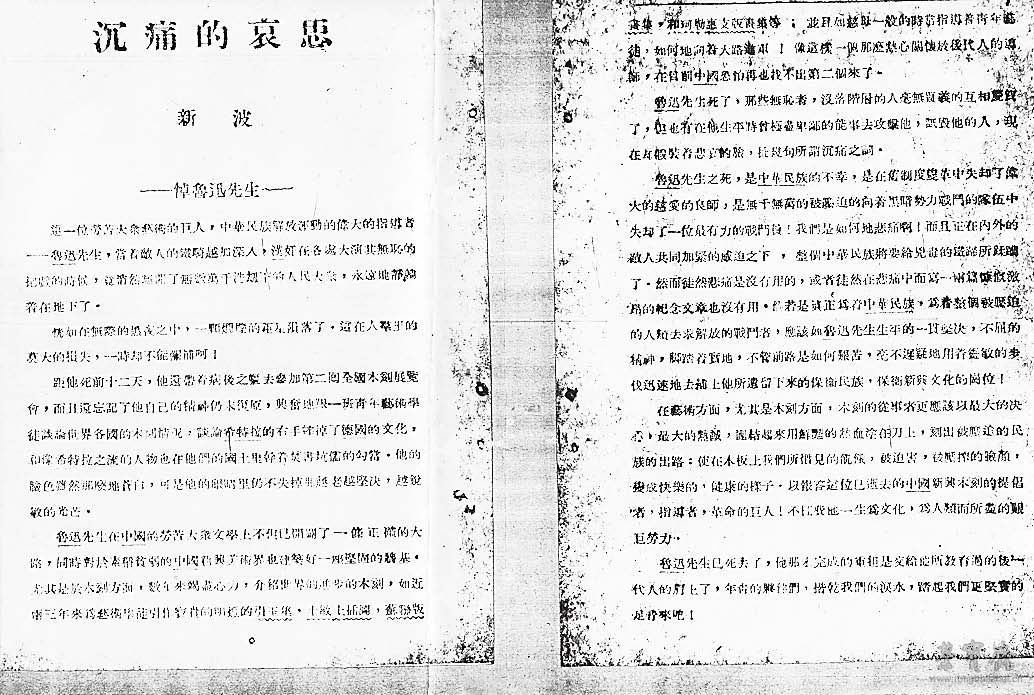 沉痛的哀思
新波
——悼魯迅先生——
這一位勞苦大衆藝術的巨人，中華民族解放運動的偉大的指導者
——魯迅先生，當着敵人的鐵騎越加深入，漢奸在各處大演其無恥的
把戲的時候，竟悄然離開了無數萬千的人民大衆，永遠地靜躺
着在地下了。
恍如在無際的黑夜之中，一顆燦爛的巨星隕落了。這在人羣裡的
莫大的損失，一時却不能彌補呵！
距他死前十二天，他還帶着病後之軀去參加第二囘全國木刻展覽
會，而且還忘記了他自己的精神仍未復原，興奮地跟一班青年藝術學
徒談論世界各國的木刻情况，談論希特拉的右手毀掉了德國的文化，
和像希特拉之流的人物也在他們的國土里幹着焚書坑儒的勾當。他的
臉色雖然那麽地蒼白，可是他的眼睛里仍不失掉里越老越堅决，越銳
敏的光芒。
魯迅先生在中國的勞苦大衆文學上不但已開闢了一條正確的大
路，同時對於素稱貧弱的中國新興美術界也建築好一座堅固的牆基。
尤其是於木刻方面，數年來竭盡心力，介紹世界的進步的木刻，如近
兩三年來爲藝術學徒引作寶貴的明燈的引玉集，士敏土插圖，蘇聯版
畫集，和珂勒惠支版畫集等；並且如慈母一般的時常指導着青年藝
徒，如何地向着大路邁進！像這樣一個那麽熱心關懷於後代人的導
師，在目前中國恐怕再也找不出第二個來了。
魯迅先生死了，那些無恥者，没落階層的人毫無買義的互相慶賀
了，但也有在他生平時曾極盡卑鄙的能事去攻擊他，詆毁他的人，現
在却假裝着悲哀的臉，扯幾句所謂沉痛之詞。
魯迅先生之死，是中華民族的不幸，是在舊制度變革中失却了偉
大的慈愛的良師，是無千無萬的被壓迫的向着黑暗勢力戰鬥的隊伍中
失却了一位最有力的戰鬥員！我們是如何地悲痛啊！而且正在内外的
敵人共同加緊的威迫之下，整個中華民族將要給兇毒的鐵蹄所踐踏
了。然而徒然悲痛是没有用的，或者徒然在悲痛中而寫一兩篇慷慨激
昂的紀念文章也没有用。若是眞正爲着中華民族，爲着整個被壓迫
的人類去求解放的戰鬥者，應該如魯迅先生生年的一貫堅決，不屈的
精神，脚踏着實地，不管前路是如何艱苦，毫不遲疑地用着靈敏的步
伐迅速地去補上他所遺留下來的保衛民族，保衛新興文化的崗位！
在藝術方面，尤其是木刻方面，木刻的從事者更應該以最大的决
心，最大的熱誠，團結起來用鮮艶的熱血塗在刀上，刻出被壓迫的民
族的出路：使在木板上我們所慣見的飢餓，被迫害，被壓搾的臉顔，
變成快樂的，健康的樣子。以報答這位已逝去的中國新興木刻的提倡
者，指導者，革命的巨人！不枉費他一生爲文化，爲人類而所盡的艱
巨勞力。
魯迅先生已死去了，他那未完成的重担是交給他所教育過的後一
代人的肩上了，年靑的夥伴們，揩乾我們的淚水，踏起我們更堅實的
足音來吧！